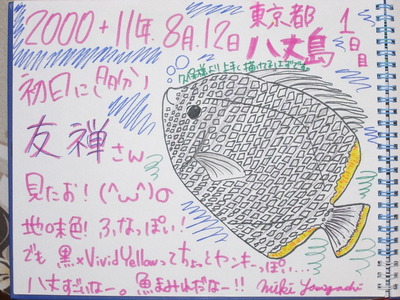 2000+11年 8月12日 東京都
八丈島
1日目
初日に(多分)
友禅さん
見たお！(^w^)の
地味色！ふなっぽい！
でも 黒×Vivid Yellowってちょっとヤンキーっぽい...
八丈すごいなー。魚まみれだなー!!
Miki Yamaguchi